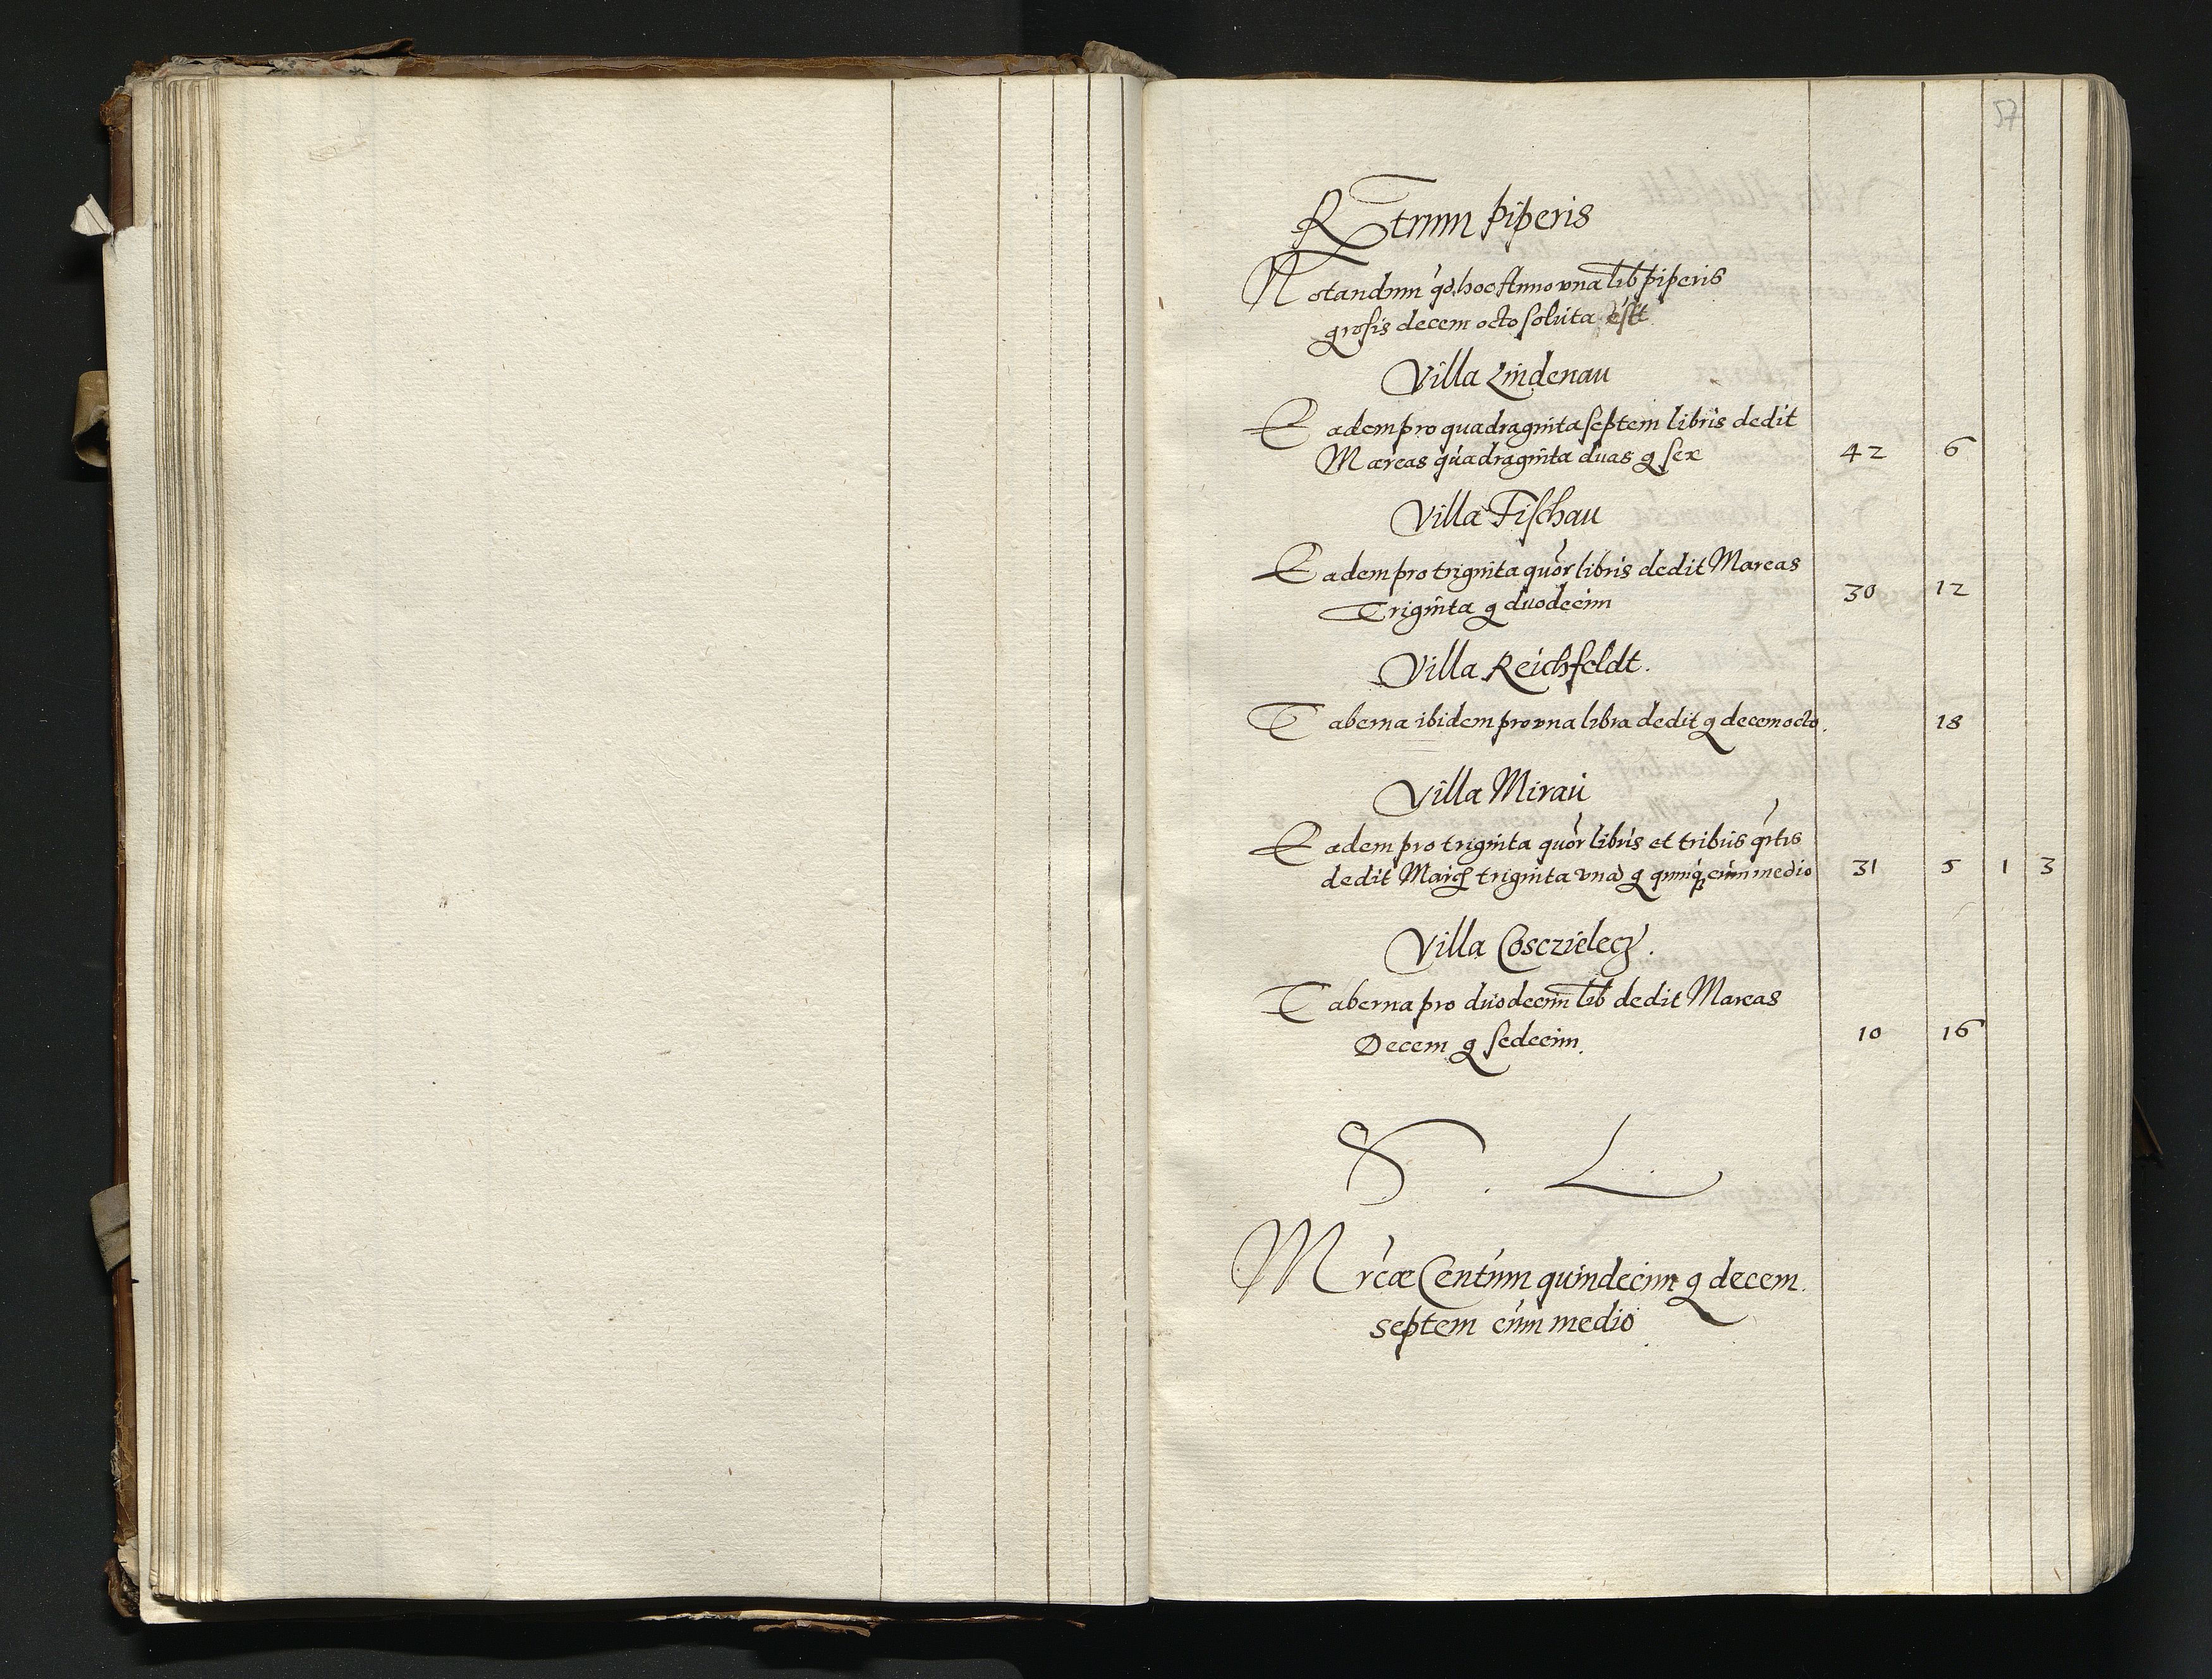 57
Rtrnm piperis
Notandum qd hoc Anno vna lib piperis
grosis decem octo soluta est
Villa Lindenau
Eadem pro quadraginta septem libris dedit
Marcas quadraginta duas g sex 42 6
Villa Fischau
Eadem pro triginta quor libris dedit Marcas
Triginta g duodecim 30 12
Villa Reichfeldt.
Taberna ibidem pro vna libra dedit g decem octo. 18
Villa Mirau
Eadem pro triginta quor libris et tribus qrtis
dedit March triginta vna g quinq cum medio 31 5 1 3
Villa Cosczielecz.
Taberna pro duodecim lib dedit Marcas
Decem g sedecim. 10 16
S . L
Mrcæ Centum quindecim g decem.
septem cum medio